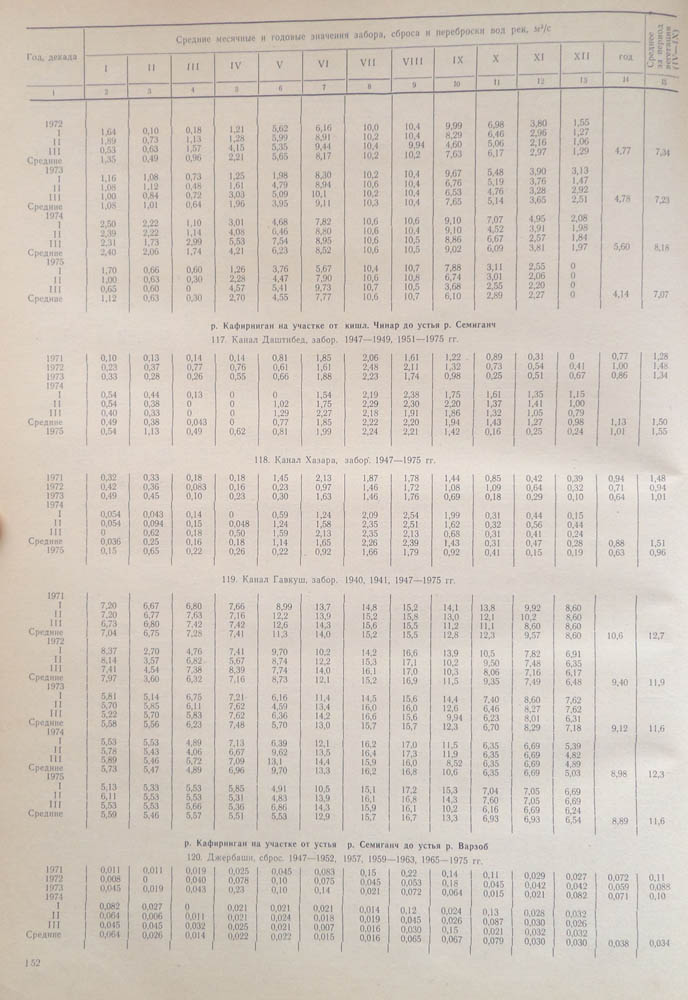 Средние месячные и годовые значения забора, сброса и переброски вод рек, м³/с
Год, декада I II III IV V VI VII VIII IX X XI XII год Среднее за период вегетации (IV—IX)
1 2 3 4 5 6 7 8 9 10 11 12 13 14 15
1972
I 1,64 0,10 0,18 1,21 5,62 6,16 10,0 10,4 9,99 6,98 3,80 1,55
II 1,89 0,73 1,13 1,28 5,99 8,91 10,2 10,4 8,29 6,46 2,96 1,27
III 0,53 0,63 1,57 4,15 5,35 9,44 10,4 9,94 4,60 5,06 2,16 1,06
Средние 1,35 0,49 0,96 2,21 5,65 8,17 10,2 10,2 7,63 6,17 2,97 1,29 4,77 7,34
1973
I 1,16 1,08 0,73 1,25 1,98 8,30 10,2 10,4 9,67 5,48 3,90 3,13
II 1,08 1,12 0,48 1,61 4,79 8,94 10,6 10,4 6,76 5,19 3,76 1,47
III 1,00 0,84 0,72 3,03 5,09 10,1 10,2 10,4 6,53 4,76 3,28 2,92
Средние 1,08 1,01 0,64 1,96 3,95 9,11 10,3 10,4 7,65 5,14 3,65 2,51 4,78 7,23
1974
I 2,50 2,22 1,10 3,01 4,68 7,82 10,6 10,6 9,10 7,07 4,95 2,08
II 2,39 2,22 1,14 4,08 6,46 8,80 10,6 10,4 9,10 4,52 3,91 1,98
III 2,31 1,73 2,99 5,53 7,54 8,95 10,6 10,5 8,86 6,67 2,57 1,84
Средние 2,40 2,06 1,74 4,21 6,23 8,52 10,6 10,5 9,02 6,09 3,81 1,97 5,60 8,18
1975
I 1,70 0,66 0,60 1,26 3,76 5,67 10,4 10,7 7,88 3,11 2,55 0
II 1,00 0,63 0,30 2,28 4,47 7,90 10,6 10,8 6,74 3,01 2,06 0
III 0,65 0,60 0 4,57 5,41 9,73 10,7 10,5 3,68 2,55 2,20 0
Средние 1,12 0,63 0,30 2,70 4,55 7,77 10,6 10,7 6,10 2,89 2,27 0 4,14 7,07
р. Кафирниган на участке от кишл. Чинар до устья р. Семиганч
117. Канал Даштибед, забор. 1947—1949, 1951—1975 гг.
1971 0,10 0,13 0,14 0,14 0,81 1,85 2,06 1,61 1,22 0,89 0,31 0 0,77 1,28
1972 0,23 0,37 0,77 0,76 0,61 1,61 2,48 2,11 1,32 0,73 0,54 0,41 1,00 1,48
1973 0,33 0,28 0,26 0,55 0,66 1,88 2,23 1,74 0,98 0,25 0,51 0,67 0,86 1,34
1974
I 0,54 0,44 0,13 0 0 1,54 2,19 2,38 1,75 1,61 1,35 1,15
II 0,54 0,38 0 0 1,02 1,75 2,29 2,30 2,20 1,37 1,41 1,00
III 0,40 0,33 0 0 1,29 2,27 2,18 1,91 1,86 1,32 1,05 0,79
Средние 0,49 0,38 0,043 0 0,77 1,85 2,22 2,20 1,94 1,43 1,27 0,98 1,13 1,50
1975 0,54 1,13 0,49 0,62 0,81 1,99 2,24 2,21 1,42 0,16 0,25 0,24 1,01 1,55
118. Канал Хазара, забор. 1947—1975 гг.
1971 0,32 0,33 0,18 0,18 1,45 2,13 1,87 1,78 1,44 0,85 0,42 0,39 0,94 1,48
1972 0,42 0,36 0,083 0,16 0,23 0,97 1,46 1,72 1,08 1,09 0,64 0,32 0,71 0,94
1973 0,49 0,45 0,10 0,23 0,30 1,63 1,46 1,76 0,69 0,18 0,29 0,10 0,64 1,01
1974
I 0,054 0,043 0,14 0 0,59 1,24 2,09 2,54 1,99 0,31 0,44 0,15
II 0,054 0,094 0,15 0,048 1,24 1,58 2,35 2,51 1,62 0,32 0,56 0,44
III 0 0,62 0,18 0,50 1,59 2,13 2,35 2,13 0,68 0,31 0,41 0,24
Средние 0,036 0,25 0,16 0,18 1,14 1,65 2,26 2,39 1,43 0,31 0,47 0,28 0,88 1,51
1975 0,15 0,65 0,22 0,26 0,22 0,92 1,66 1,79 0,92 0,41 0,15 0,19 0,63 0,96
119. Канал Гавкуш, забор. 1940, 1941, 1947—1975 гг.
1971
I 7,20 6,67 6,80 7,66 8,99 13,7 14,8 15,2 14,1 13,8 9,92 8,60
II 7,20 6,77 7,63 7,16 12,2 13,9 15,2 15,8 13,0 12,1 10,2 8,60
III 6,73 6,80 7,42 7,42 12,6 14,3 15,6 15,5 11,2 11,1 8,60 8,60
Средние 7,04 6,75 7,28 7,41 11,3 14,0 15,2 15,5 12,8 12,3 9,57 8,60 10,6 12,7
1972
I 8,37 2,70 4,76 7,41 9,70 10,2 14,2 16,6 13,9 10,5 7,82 6,91
II 8,14 3,57 6,82 5,67 8,74 12,2 15,3 17,1 10,2 9,50 7,48 6,35
III 7,41 4,54 7,38 8,39 7,74 14,0 16,1 17,0 10,3 8,06 7,16 6,17
Средние 7,97 3,60 6,32 7,16 8,73 12,1 15,2 16,9 11,5 9,35 7,49 6,48 9,40 11,9
1973
I 5,81 5,14 6,75 7,21 6,16 11,4 14,5 15,6 14,4 7,40 8,60 7,62
II 5,70 5,85 6,11 7,62 4,59 13,4 16,0 16,0 12,6 6,46 8,27 7,62
III 5,22 5,70 5,83 7,62 6,36 14,2 16,6 15,6 9,94 6,23 8,01 6,31
Средние 5,58 5,56 6,23 7,48 5,70 13,0 15,7 15,7 12,3 6,70 8,29 7,18 9,12 11,6
1974
I 5,53 5,53 4,89 7,13 6,39 12,1 16,2 17,0 11,5 6,35 6,69 5,39
II 5,78 5,43 4,06 6,67 9,62 13,5 16,4 17,3 11,9 6,35 6,69 4,82
III 5,89 5,46 5,72 7,09 13,1 14,4 15,9 16,0 8,52 6,35 6,69 4,89
Средние 5,73 5,47 4,89 6,96 9,70 13,3 16,2 16,8 10,6 6,35 6,69 5,03 8,98 12,3
1975
I 5,13 5,33 5,53 5,85 4,91 10,5 15,1 17,2 15,3 7,04 7,05 6,69
II 6,11 5,53 5,53 5,31 4,83 13,9 16,1 16,8 14,3 7,60 7,05 6,69
III 5,53 5,53 5,66 5,36 6,86 14,3 15,9 16,1 10,2 6,16 6,69 6,24
Средние 5,59 5,46 5,57 5,51 5,53 12,9 15,7 16,7 13,3 6,93 6,93 6,54 8,89 11,6
р. Кафирниган на участке от устья р. Семиганч до устья р. Варзоб
120. Джербаши, сброс. 1947—1952, 1957, 1959—1963, 1965—1975 гг.
1971 0,011 0,011 0,019 0,025 0,045 0,083 0,15 0,22 0,14 0,11 0,029 0,027 0,072 0,11
1972 0,008 0 0,040 0,078 0,10 0,075 0,045 0,053 0,18 0,045 0,042 0,042 0,059 0,088
1973 0,045 0,019 0,043 0,23 0,10 0,14 0,021 0,072 0,064 0,015 0,021 0,082 0,071 0,10
1974
I 0,082 0,027 0 0,021 0,021 0,021 0,014 0,12 0,024 0,13 0,028 0,032
II 0,064 0,006 0,011 0,021 0,024 0,018 0,019 0,045 0,026 0,087 0,030 0,026
III 0,045 0,045 0,032 0,025 0,021 0,007 0,016 0,030 0,15 0,021 0,032 0,032
Средние 0,064 0,026 0,014 0,022 0,022 0,015 0,016 0,065 0,067 0,079 0,030 0,030 0,038 0,034
152